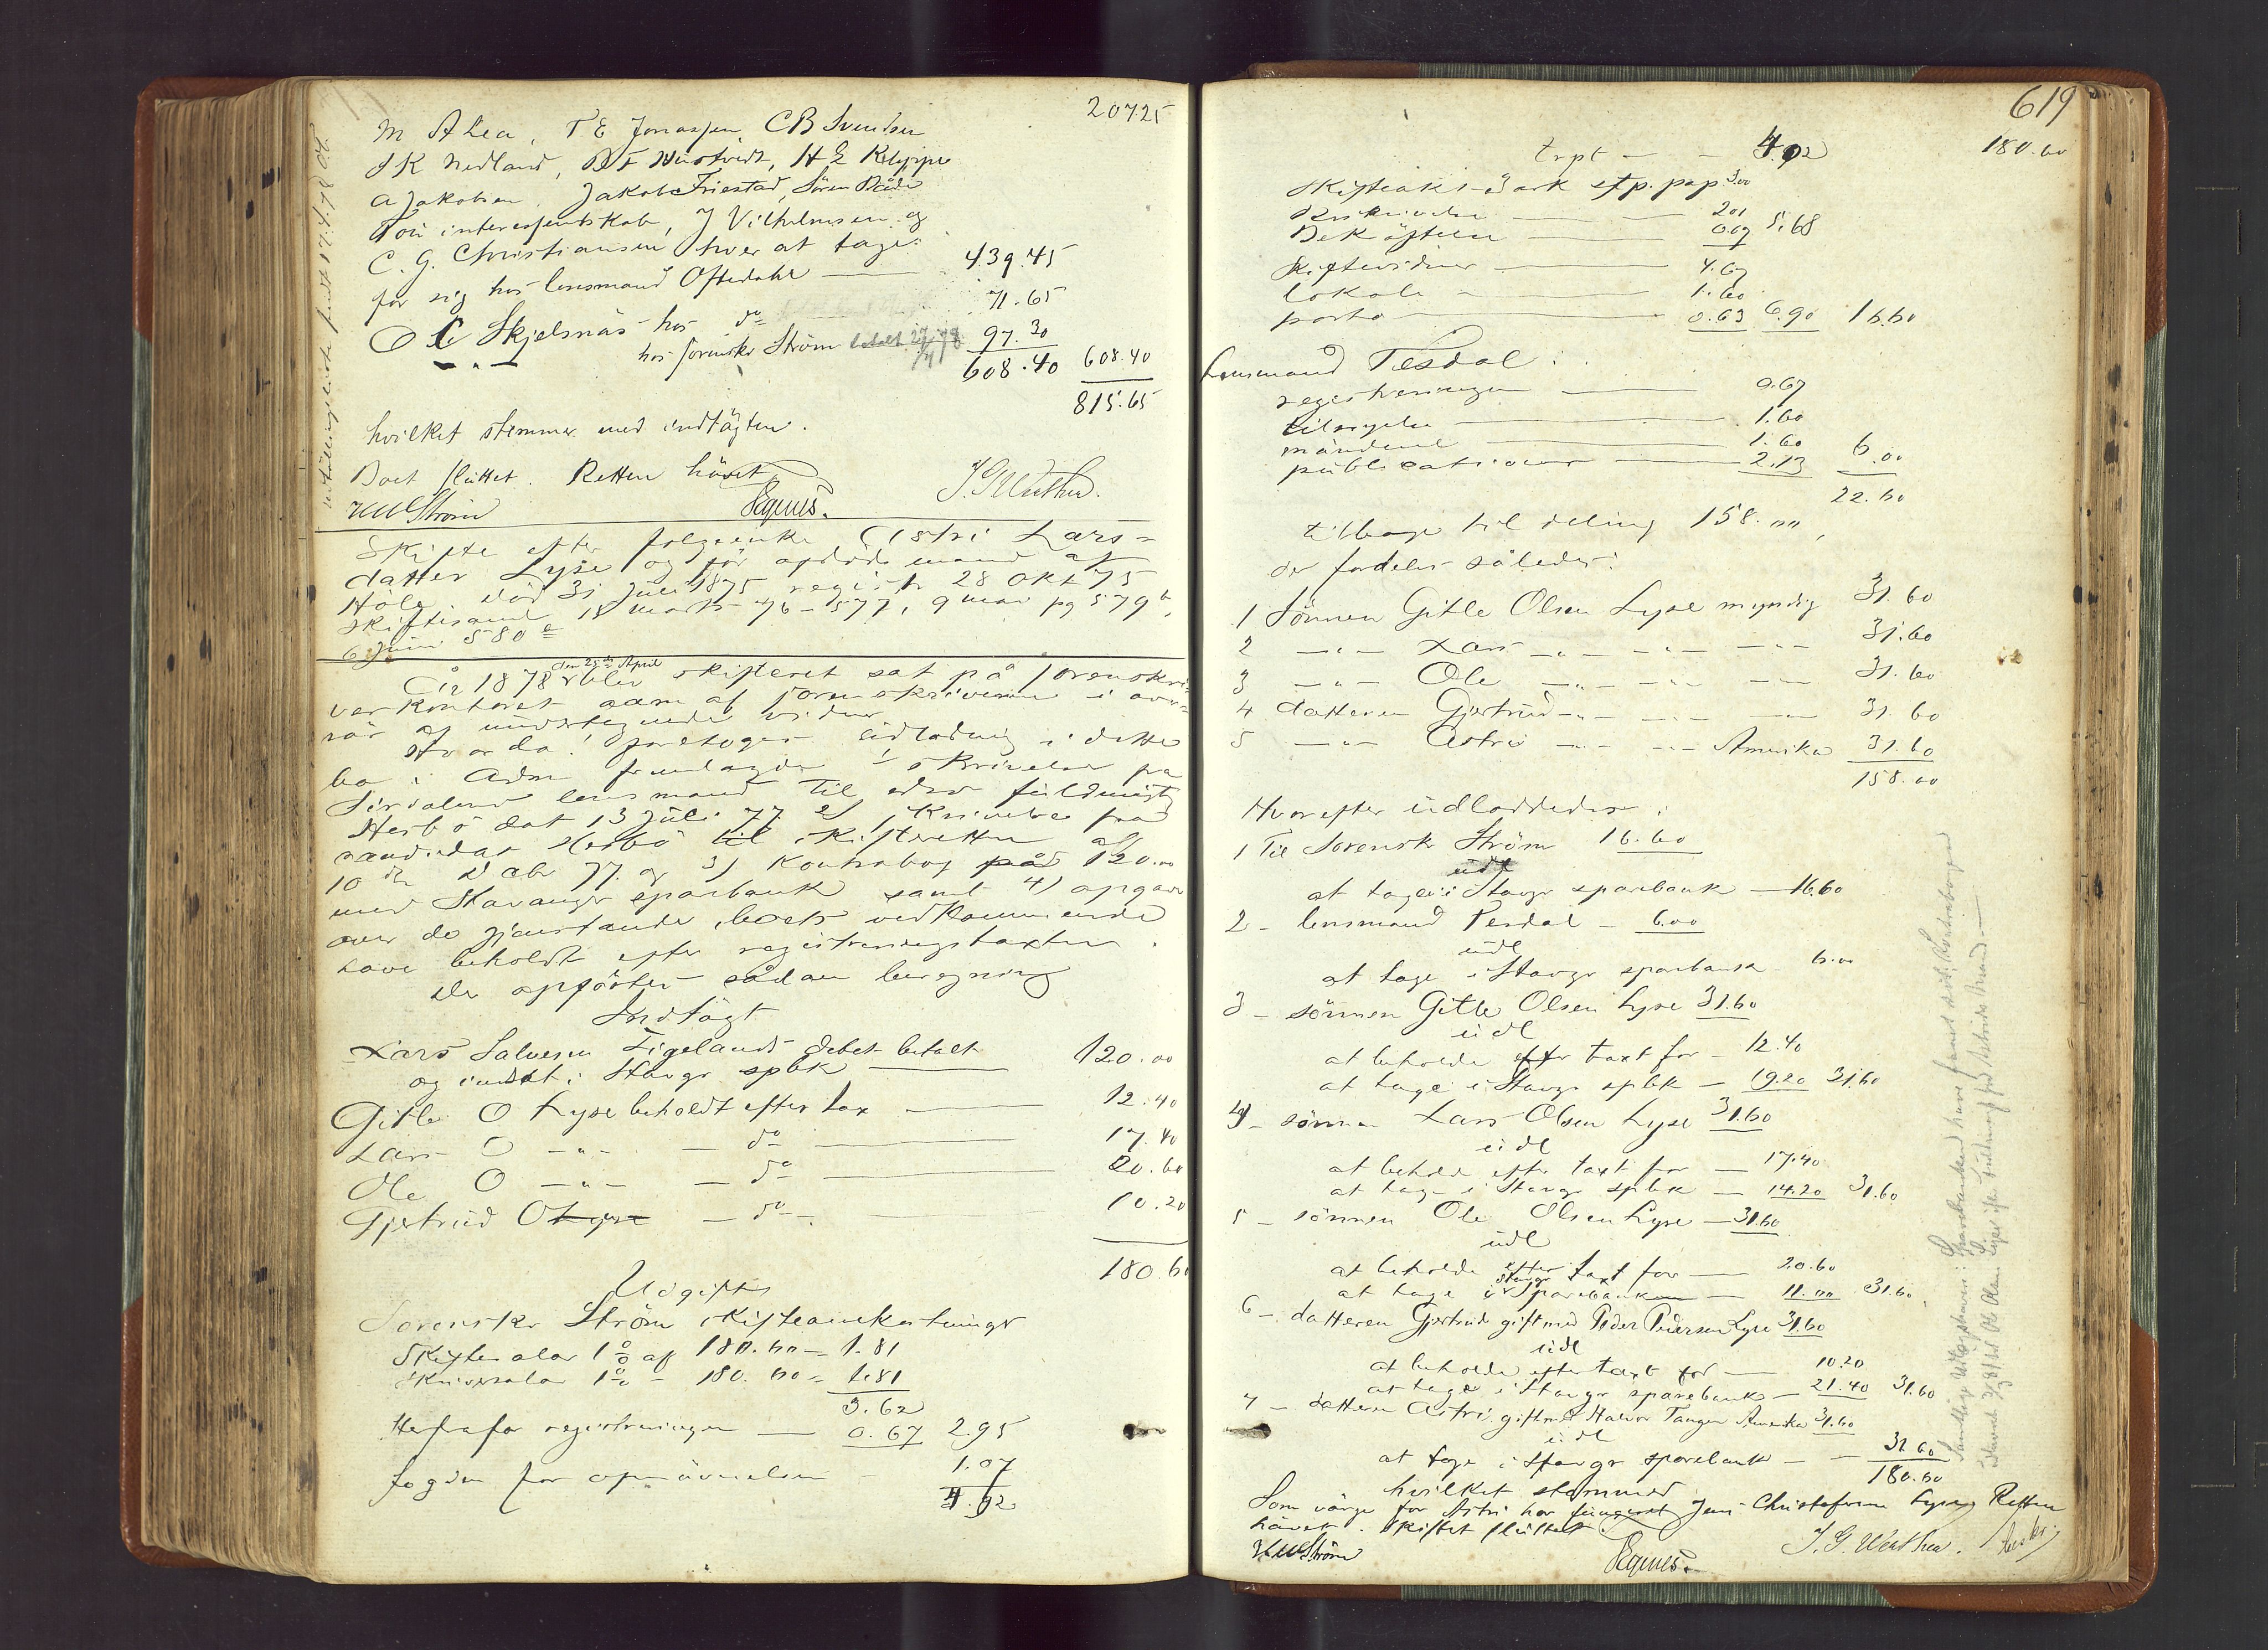 207.25
M Alea, T E Jonassen, CB Svendsen
J K Nedland, B F Hustvedt, H E Kleppe
A Jakobsen, Jakob Friestad, Sören Bade
Tou interessentskab, J Vilhelmsen og
C. G. Christiansen hver at tage
for sig hos lensmand Oftedahl — 439.45
O C Skjelsnäs hos do 71.65
— " — hos sorenskr Ström betalt 27/4 78 97.30
608.40 608.40
815.65
hvilket stemmer med indtägten.
Boet sluttet. Retten hävet
Ström Equus. J. G. Wathne.
Skifte efter folgeenke Astri Lars=
datter Lyse og för afdöde mand af
Höle, död 31 Juli 1875 registr 28 Okt 75
skiftesaml 18 marts 76 – 577, 9 mai pg 579 b,
6 Juni 580 a
År 1878 den 25de April blev skifteret sat på sorenskri=
verkontoret adm af sorenskriveren i over=
vär af undertegnede vidner
Hvorda! foretoges udlodning i dette
bo. Adm fremlagde 1 skrivelse fra
Sirdalens lensmand til edsv fuldmägt
Herbö dat 13 Juli 77 2) skrivelse fra
kandidat Herbö til skifteretten af
10 de Dcbr 77. og 3) Kontrabog på 120.00
med Stavanger sparbank samt 4) opgave
over de gjenstande, boets vedkommende
have beholdt efter registreringstaxten.
Der opförtes sådan beregning
Indtägt
Lars Salvesen Tigelands debet betalt
og indsat i Stavgr spbk — 120.00
Gitle O Lyse beholdt efter tax — 12.40
Lars O — " — — do — 17.40
Ole O — " — — do — 20.60
Gjertrud O Lyse — do — 10.20
180.60
Udgift
Sorenskr Ström skifteomkostninger
Skiftesalar 1% af 180.60 = 1.81
skriversalar 1% – 180.60 = 1.81
3.62
Herfra for registreringen — 0.67 2.95
fogden for opnävnelsen – 1.07
4.02
619
Trpt — — 4.02 180.60
Skifteakt 3 ark stp. pap 3.00
Beskrivelse — 2.01
Bekräftelse — 0.67 5.68
Skiftevidner — 4.67
lokale — 1.60
porto — 0.63 6.90 16.60
Lensmand Tesdal:
registreringen — 0.67
tilsigelse — 1.60
mändene — 1.60
publikationer — 2.13 6.00
22.60
tilbage til deling 158.00,
der fordeles således:
1 Sönnen Gitle Olsen Lyse myndig 31.60
2 — " — Lars — " — — " — — " — 31.60
3 — " — Ole — " — — " — — " — 31.60
4 datteren Gjertrud — " — — " — — " — 31.60
5 — " — Astri — " — — " — Amerika 31.60
158.00
Hvorefter udloddedes:
1 Til Sorenskr Ström 16.60
udl
at tage i Stavgr sparbank — 16.60
2 – lensmand Tesdal – 6.00
udl
at tage i Stavgr sparbank 6.00
3 – sönnen Gitle Olsen Lyse 31.60
udl
at beholde efter taxt for – 12.40
at tage i Stavgr spbk – 19.20 31.60
4 – sönnen Lars Olsen Lyse 31.60
udl
at beholde efter taxt for — 17.40
at tage i Stavgr spbk — 14.20 31.60
5 – sönnen Ole Olsen Lyse — 31.60
udl
at beholde efter taxt for — 20.60
at tage i Stavgr sparebanken — 11.00 31.60.
6 – datteren Gjertrud gift med Peder Pedersen Lyse 31.60
udl
at beholde efter taxt for — 10.20
at tage i Stavgr sparebank — 21.40 31.60
7 – datteren Astri gift med Halvor Tangen Amerika 31.60
udl
at tage i Stavgr sparebank — – 31.60
180.60
hvilket stemmer.
Som värge for Astri har fungeret Jens Christofersen Lyse, Retten
hävet. Skiftet sluttet.
Ström Equus. J. G. Wathne.